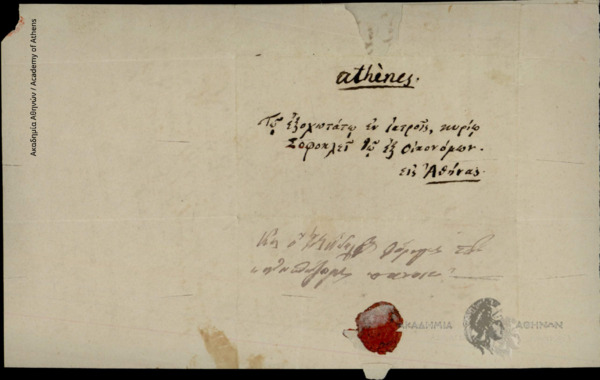 Ακαδημία Αθηνών / Academy of Athens
athènes.
Τῷ ἐξοχωτάτῳ ἐν ἰατροῖς, κυρίῳ
Σοφοκλεῖ τῷ ἐξ Οἰκονόμων.
εἰς Ἀθήνας.
ΑΚΑΔΗΜΙΑ ΑΘΗΝΩΝ